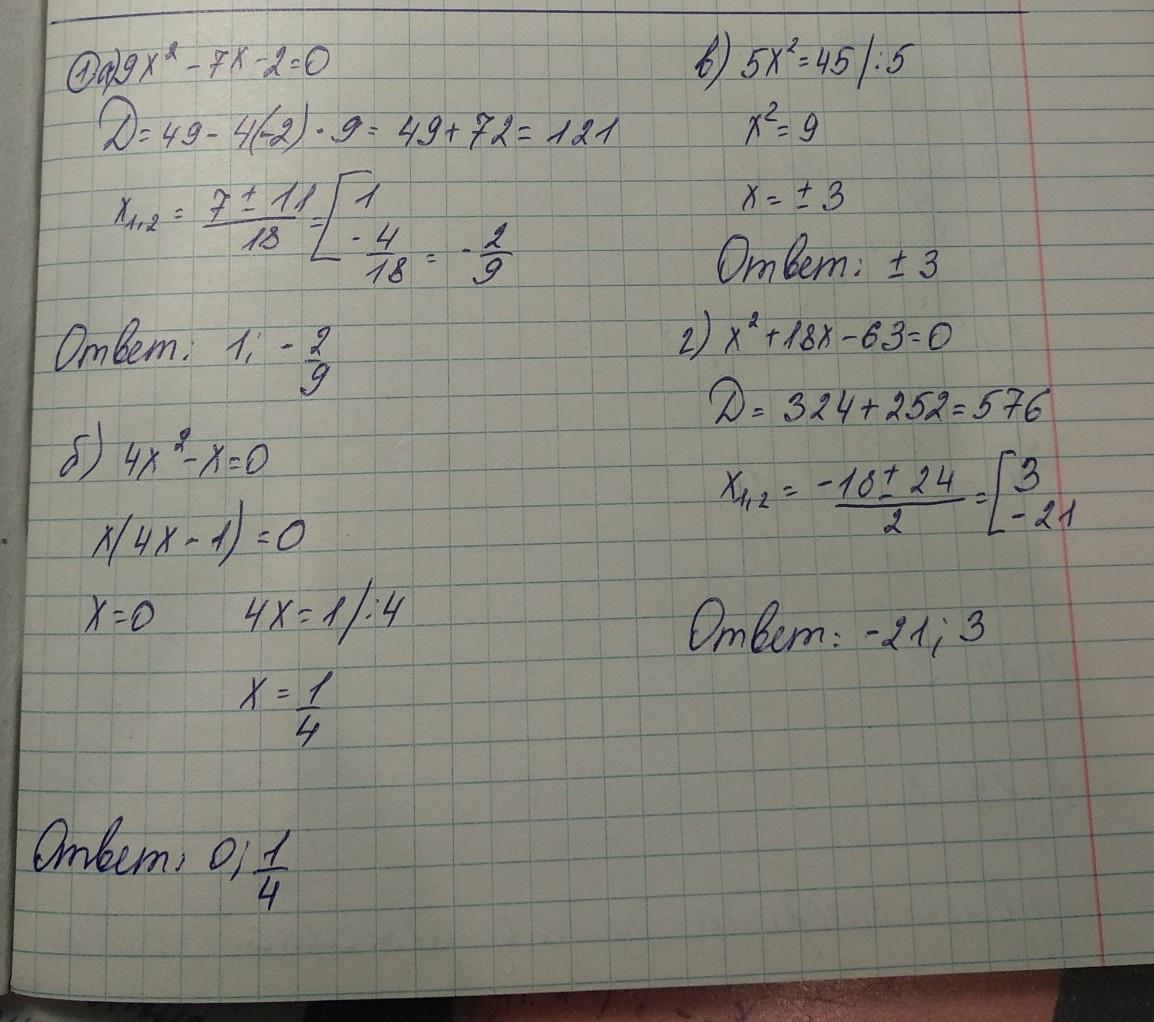 ① а) 9x² - 7x - 2 = 0
D = 49 - 4(-2) · 9 = 49 + 72 = 121
x₁,₂ = (7 ± 11)/18 = [ 1
-4/18 = -2/9
Ответ: 1; -2/9
б) 4x² - x = 0
x(4x - 1) = 0
x = 0 4x = 1 /:4
x = 1/4
Ответ: 0; 1/4
в) 5x² = 45 /:5
x² = 9
x = ± 3
Ответ: ± 3
г) x² + 18x - 63 = 0
D = 324 + 252 = 576
x₁,₂ = (-18 ± 24)/2 = [ 3
-21
Ответ: -21; 3